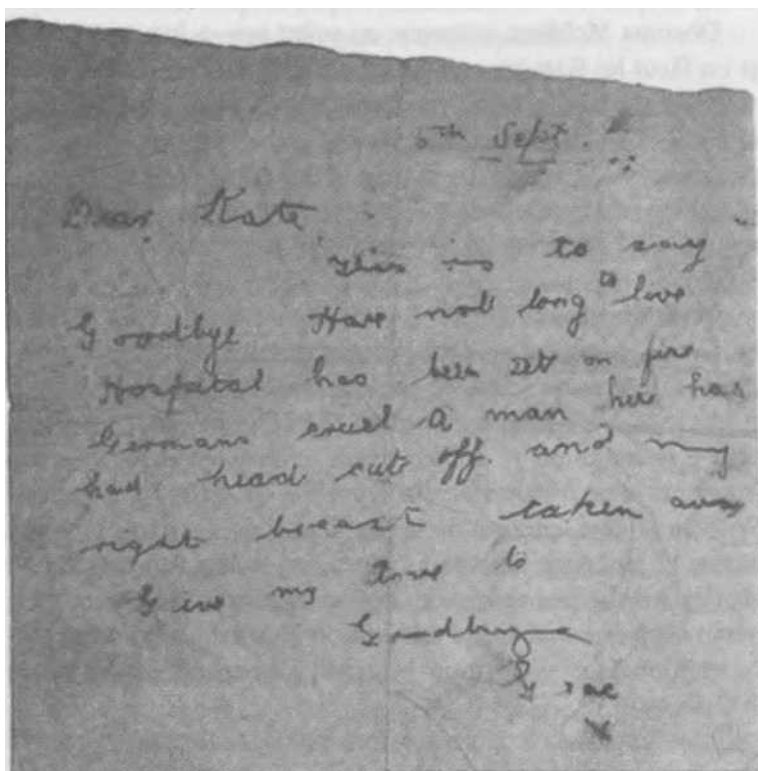 6th Sept.
Dear Kate
This is to say
Goodbye Have not long to live
Hospital has been set on fire
Germans cruel A man here has
had head cut off. and my
right breast taken away
Give my love to
Goodbye
Grace
X